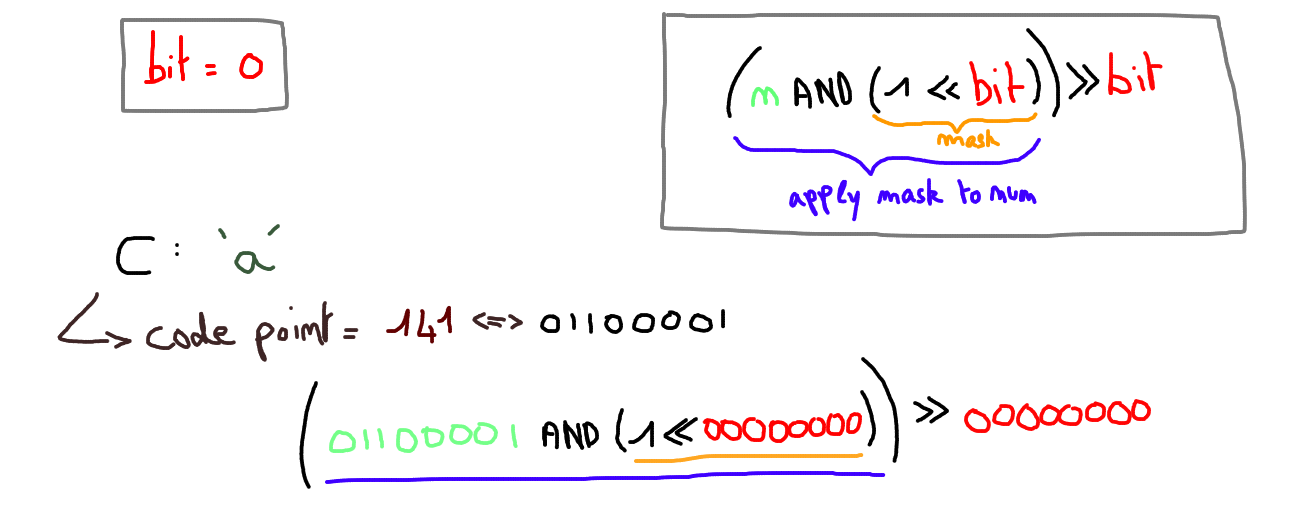 bit = 0
(n AND (1 << bit)) >> bit
mask
apply mask to num
C : 'a'
↳ code point = 141 <=> 01100001
(01100001 AND (1 << 00000000)) >> 00000000